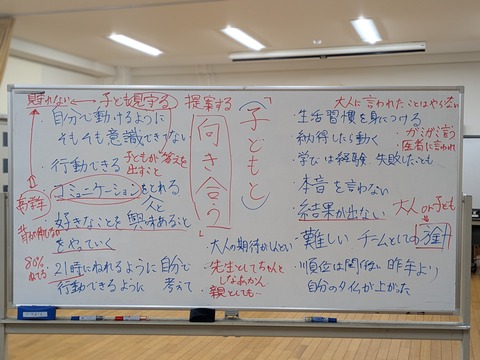 見守る
子ども
提案する
「子どもと」
向き合う
・自分で動けるように
そもそも意識できてない
・行動できる
子どもが答えを
出すこと
・コミュニケーションをとれる
人と
・好きなことを 興味あること
をやっていく
高学年
80%
・21時にねれるように 自分で
行動できるように 考えて
・大人の期待がしんどい
・先生としてちゃんと
しなあかん
親としても…
大人に言われたことはやらない
・生活習慣を身につける
・納得したら動く
ガミガミ言う
医者に言われ
・学びは経験 失敗したことも
・本音を言わない
・結果が出ない
大人 or 子ども
・難しい チームとしての
・順位は関係ない 昨年より
自分のタイムが上がった